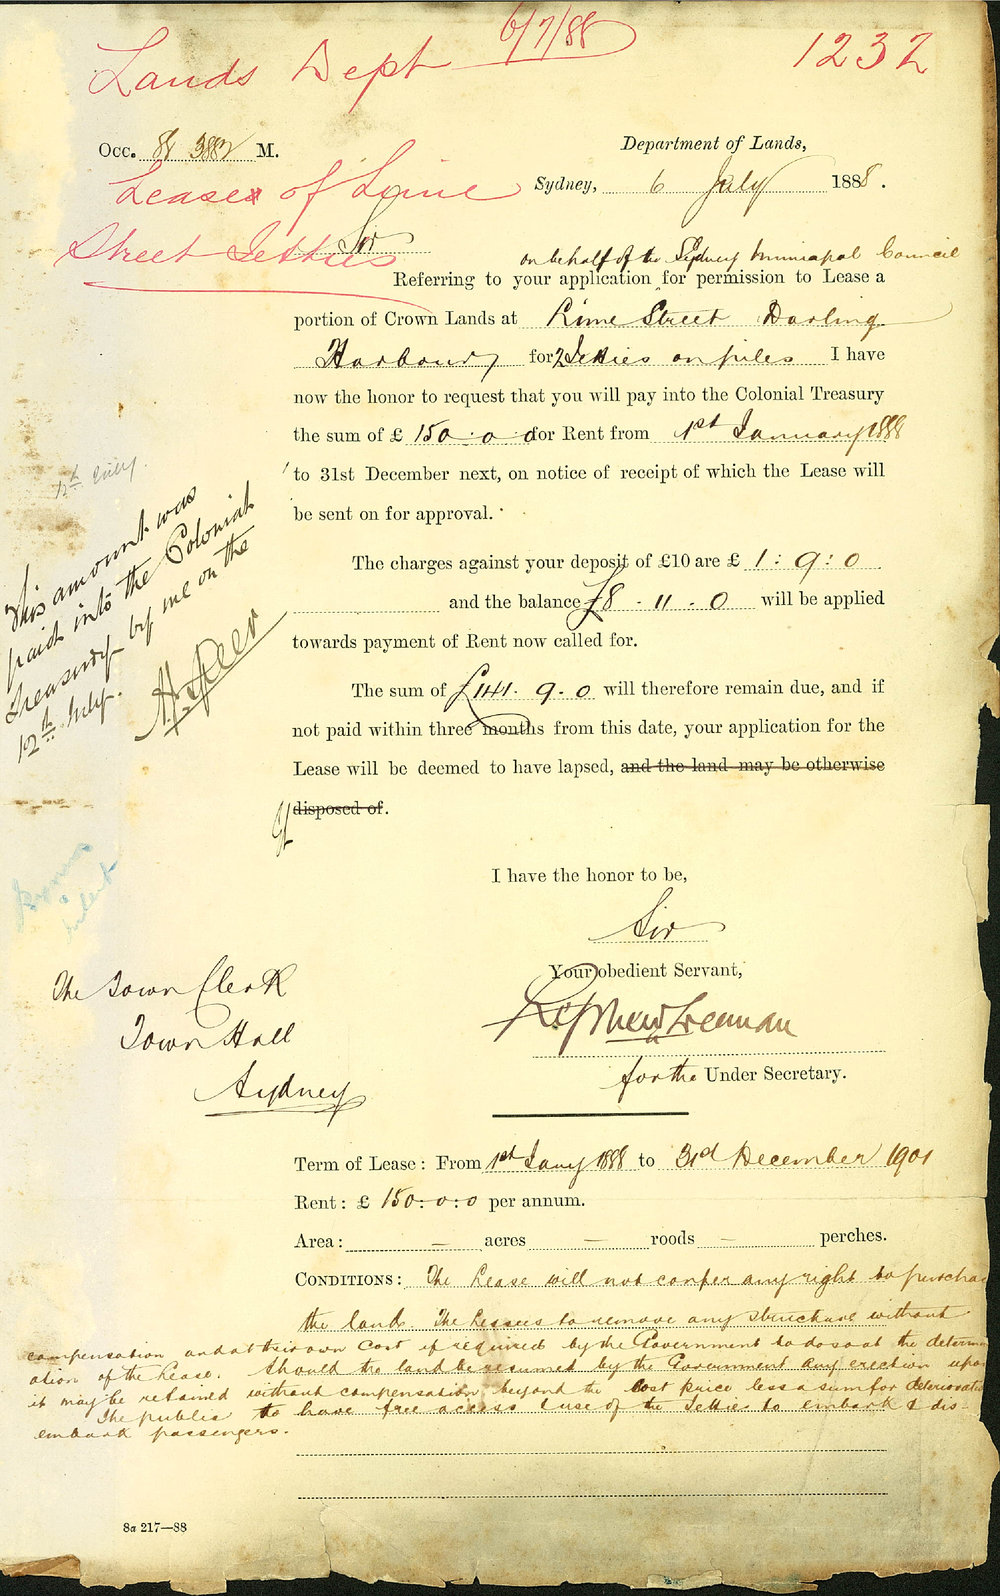 6/7/88
Lands Dept
1232
Occ. 88 3882 M.
Department of Lands,
Leases of Lime
Sydney, 6 July 1888.
Street Jetties
Sir
on behalf of the Sydney Municipal Council
Referring to your application for permission to Lease a
portion of Crown Lands at Lime Street Darling
Harbour, for 2 Jetties on piles I have
now the honor to request that you will pay into the Colonial Treasury
the sum of £ 150.0.0 for Rent from 1st January 1888
to 31st December next, on notice of receipt of which the Lease will
be sent on for approval.
The charges against your deposit of £10 are £ 1:9:0
and the balance £8.11.0 will be applied
towards payment of Rent now called for.
The sum of £141.9.0 will therefore remain due, and if
not paid within three months from this date, your application for the
Lease will be deemed to have lapsed, and the land may be otherwise
disposed of.
12th July
This amount was
paid into the Colonial
Treasury by me on the
12th July.
I have the honor to be,
Sir
Your obedient Servant,
for the Under Secretary.
The Town Clerk
Town Hall
Sydney
Term of Lease: From 1st Jany 1888 to 31st December 1901
Rent: £ 150:0:0 per annum.
Area: — acres — roods — perches.
CONDITIONS: The Lease will not confer any right to purcha
the land. The Lessees to remove any structure without
compensation and at their own cost if required by the Government to do so at the determin
ation of the Lease. Should the land be resumed by the Government any erection upon
it may be retained without compensation beyond the Cost price less a sum for deterioratio
The public to have free access & use of the Jetties to embark & dis-
embark passengers.
8a 217—88